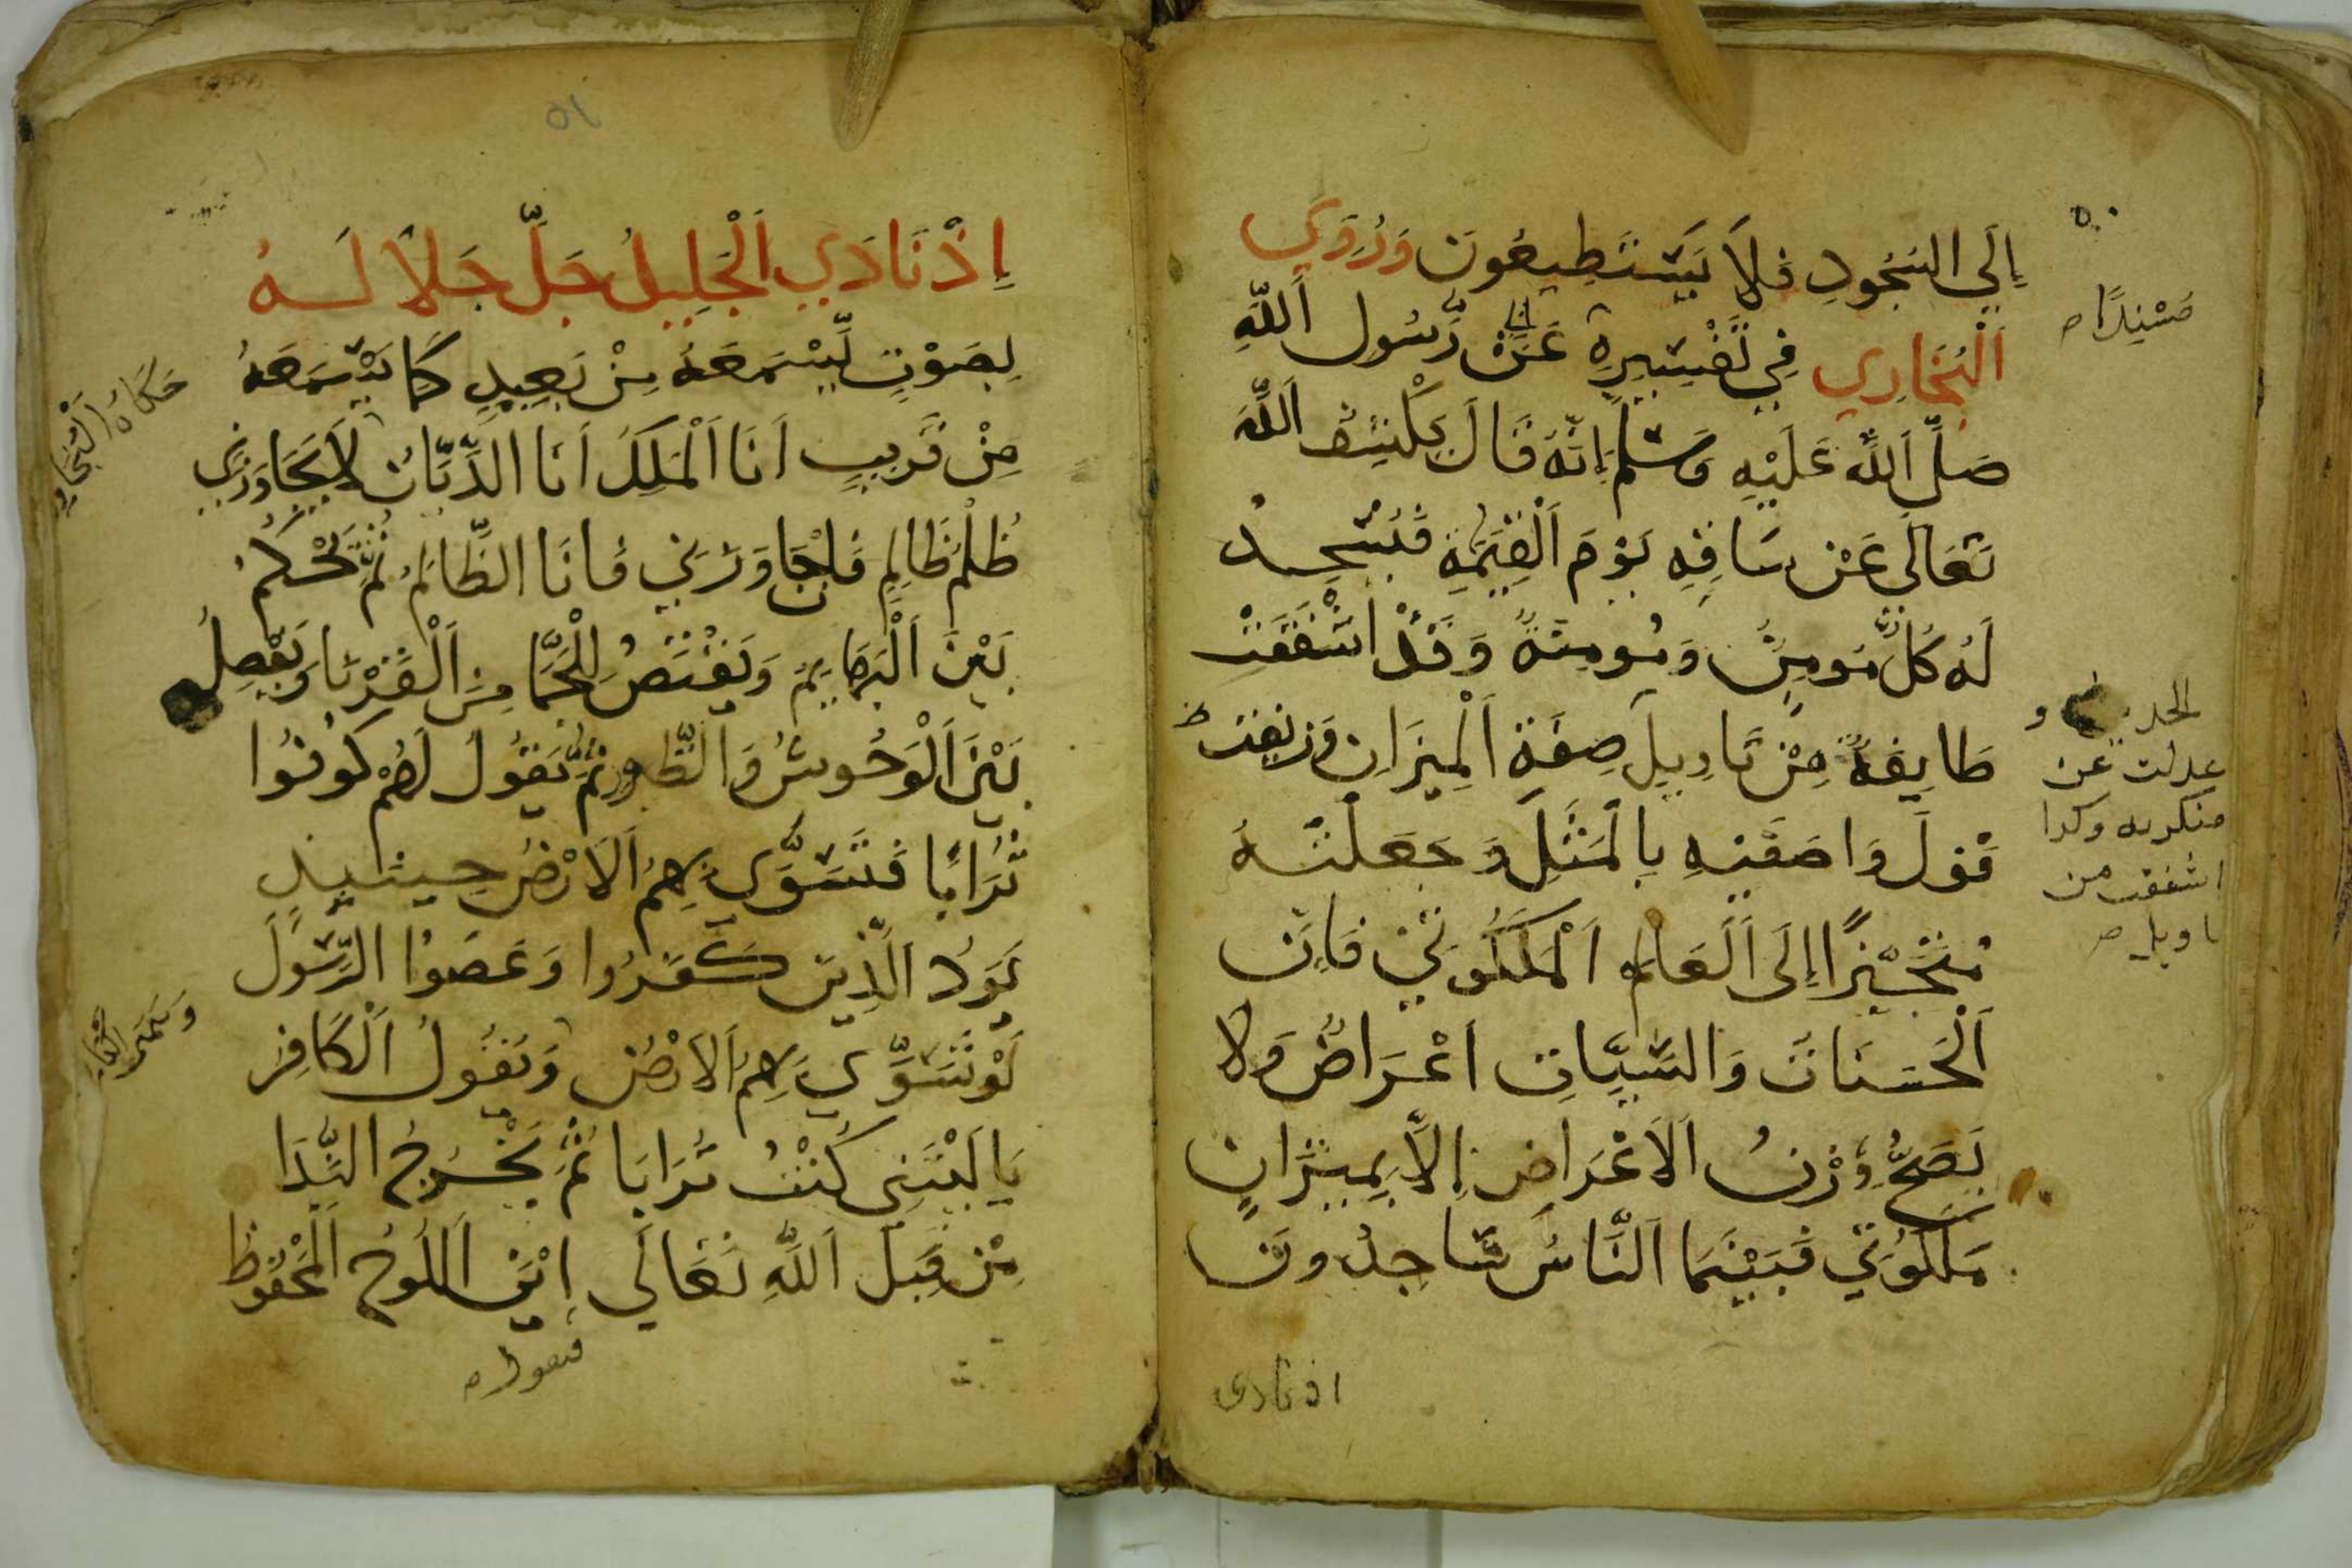 إِلَي السُجُودِ فَلاَ يَسْتَطِيعُونَ وَرُوِيَ
اَلْبُخَارِي فِي تَفْسِيرِهِ عَنْ رَّسُولِ اَللَّهِ
صَلَّى اَللَّه عَلَيْهِ وَسَلَّم إِنَّهُ قَالَ يَكْشِفُ اَللَّهُ
تَعَالَى عَنْ سَاقِهِ يَوْمَ اَلْقِيَمَةِ فَيَسْجِدُ
لَهُ كُلُّ مُومِنٍ وَمُومِنَةٍ وَقَدْ اشْفَقَتْ
طَايِفَةٌ مِنْ تَاوِيلِ صِفَةِ اَلْمِيزَانِ وَزيفت
قَوْلَ وَاصَفَيْهِ بِالْمَثَلِ وَجَعَلَتْهُ
مُتَحَيِّزًا إِلَى اَلْعَالَمِ اَلْمَلَكُوتِي فَإِنَّ
اَلْحَسَنَاتَ وَالسَّيِّاتِ اعْرَاضٌ وَلا
يَصَحُّ وَزْنُ اَلاَعْرَاضِ إِلاَّ بِمِيزَانٍ
مَلَكُوتِي فَبَيْنَمَا اَلنَّاسُ سَاجِدُونَ
اذ نادى
٥٠
مُسْنِدًا
عدلت عن
وكذا
اشفقت من
٥١
إِذْ نَادَي اَلْجَلِيلُ جَلَّ جَلاَ لَهُ
بِصَوْتٍ يَّسْمَعَهُ مِنْ بَعِيدٍ كَمَا يَسْمَعَهُ
مِنْ قَرِيبٍ اَنَا اَلْمَلِكَ اَنَا الدَّيَّانُ لاَ يَجَاوَزنِي
ظُلْمُ ظَالِمٍ فَإِنْ جَاوَزَنِي فَانَا الظَّالِمُ ثُمَّ يَحْكُمُ
بَيْنَ اَلْبَهَايِمُ وَيَقْتَصُ لِلْجَمَّا مِنَ اَلْقَرْنَا وَيَفْصِلُ
بَيْنَ اَلْوَحُوشُ وَالطَّيْورِ ثُمَّ يَقُولُ لَهُمْ كُونُوا
تُرَابًا فَتَسَوَّى بِهِمُ اَلاَرْضُ حِينَيِذٍ
يَوَدُ الَّذِينَ كَفَرُوا وَعَصَوْا الرَّسُولَ
لَوْ تَسَوِّي بِهِمُ اَلاَرْضُ وَيَقُولُ اَلْكَافِرُ
يَا لَيْتَنِي كُنْتُ تُرَابَا ثُمَّ يَخْرَجُ النِّدَا
مِنْ قِبَلِ اَللَّهِ تَعَالَي ايْنَ اَللَّوحُ اَلْمَحْفُوظ
حَكَاهُ اَلْبُخَارِي